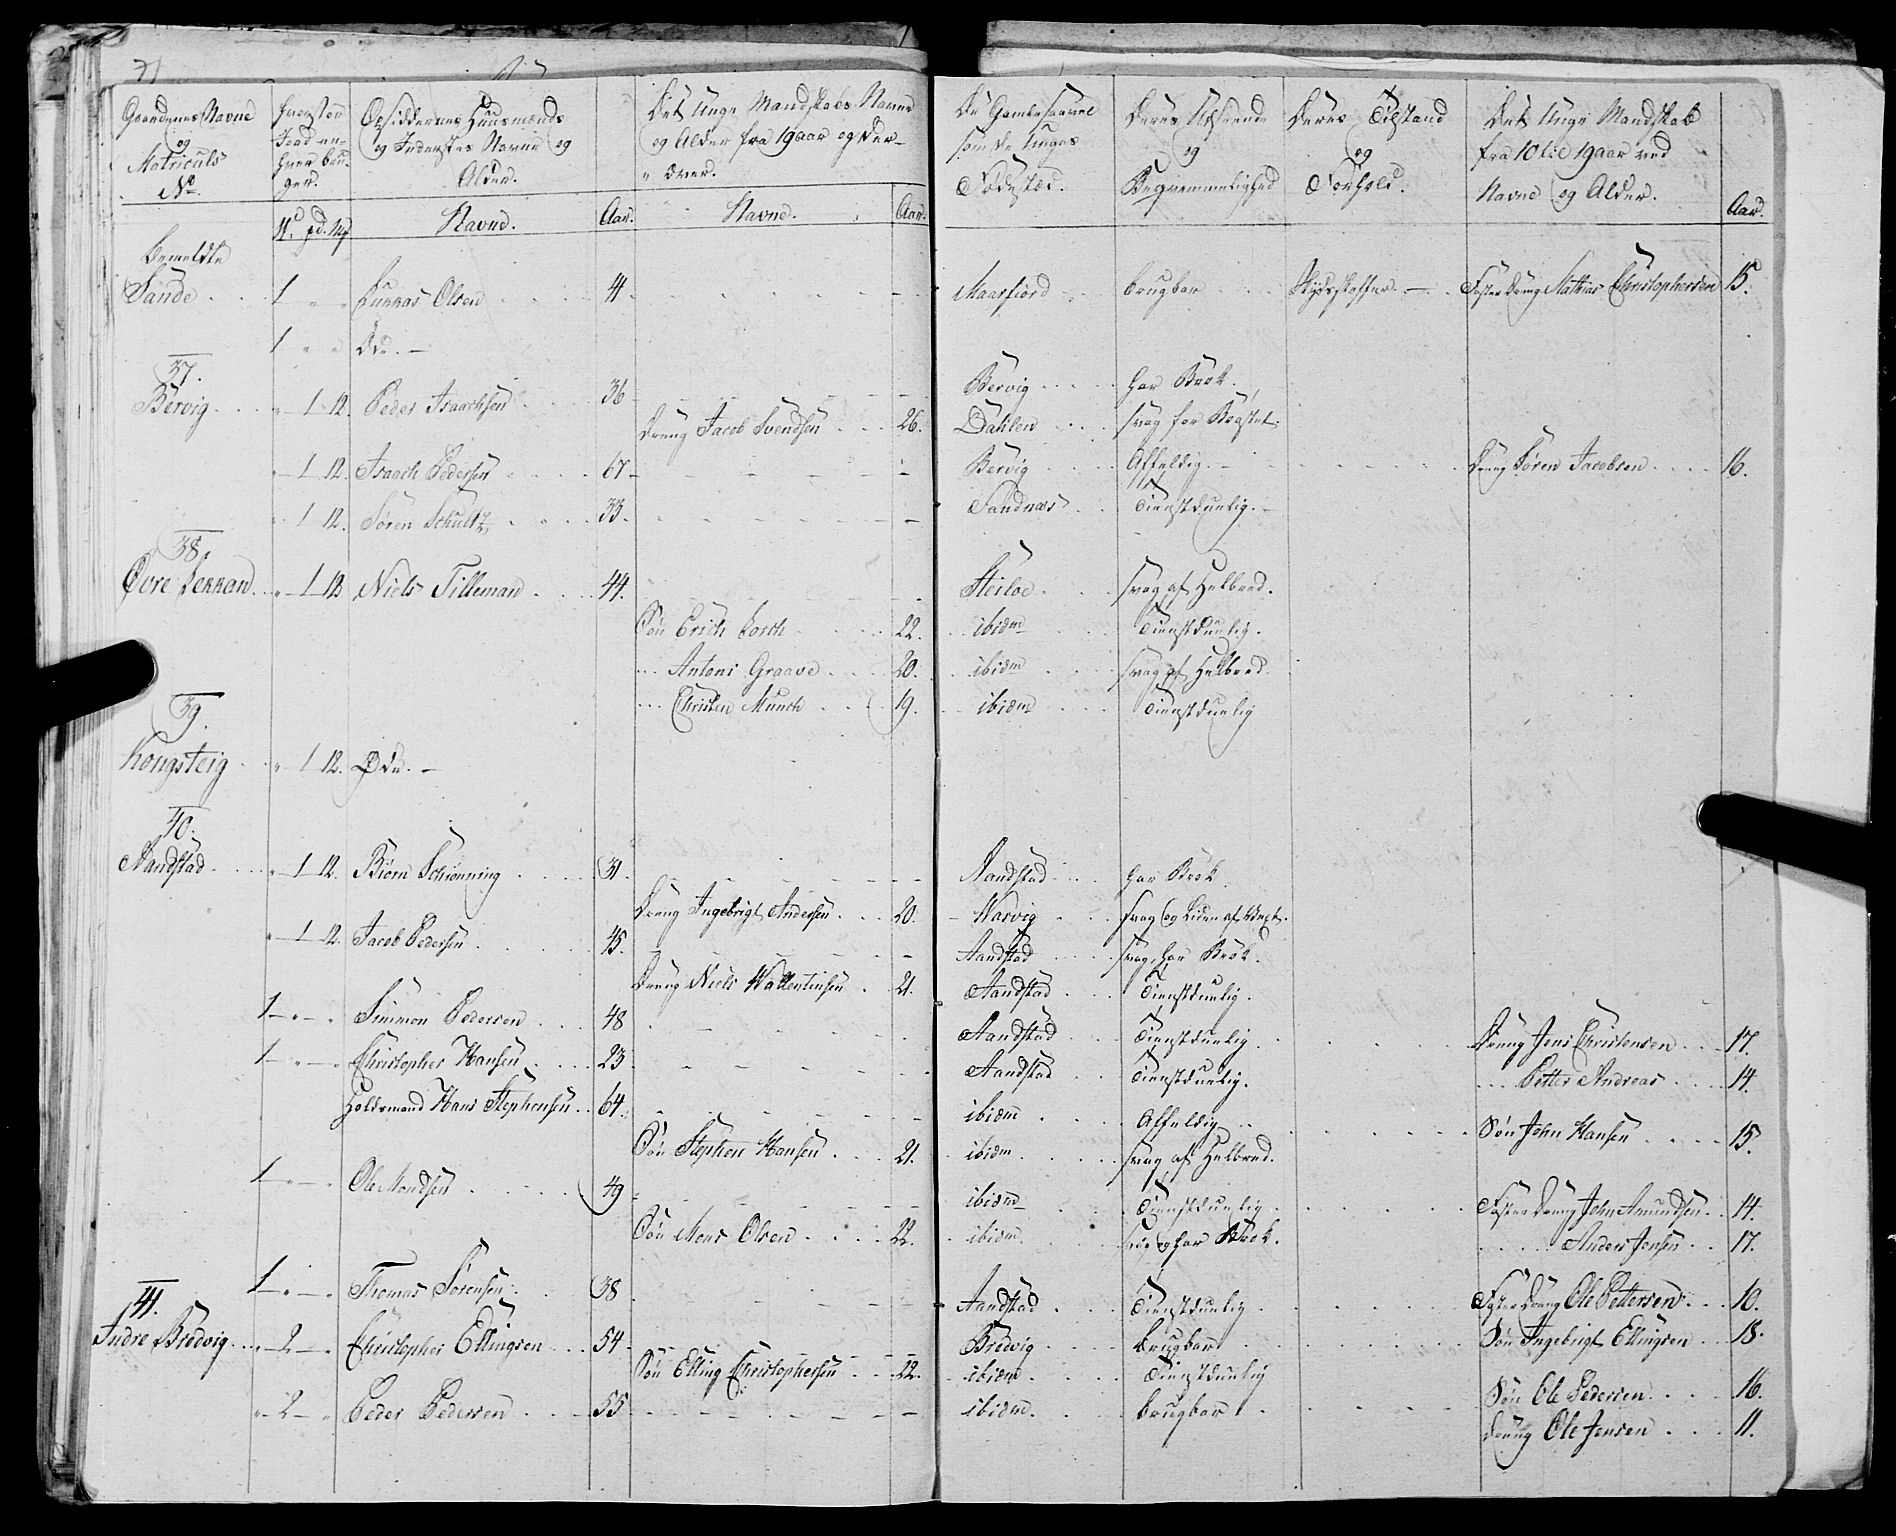 Gaardenes Navne og Matriculs No.
hver bruger.
Opsiddernes Huusmænds og Inderstes Navne og Alder.
Det Unge Mandskabs Navne og Alder fra 19 aar og der- over.
De Gamle saavel som de Unges Fødestæd.
Deres Udseende og Beqvemmelighed
Deres Tilstand og Forhold.
Det Unge Mandskab fra 10 til 19 aar ved Navne og Alder.
Navne. Aar. Navne. Aar. Aar.
Bemeldte
Sande 1 " " Lukkas Olsen 41 Maarfiord brugbar Skydsskaffer Foster Dreng Mathias Christophersen 15.
1 " " Øde.
37.
Bervig " 1 12 Peder Isaachsen 36 Bervig har Brok.
Dreng Jacob Svendsen 26. Dahlen svag for Brystet.
" 1 12. Isaach Pedersen 67 Bervig Affeldig Dreng Sören Jacobsen 16.
" 1 12. Sören Schultz 33. Sandnæs Tienstdygtig.
38.
Øvre Lekkan " 1 12 Niels Tilleman 44. Steiloe svag af Helbred.
Søn Erich Losch 22. ibidm Tienstdygtig.
Antoni Graave 20. ibidm svag af Helbred.
Christen Munch 19. ibidm Tienstdygtig
39.
Kongsteig " 1 12. Øde.
40.
Aandstad " 1 12. Biörn Schiönning 31. Aandstad har Brok
Dreng Ingebrigt Andersen 20. Narvig svag og Liden af Vext.
" 1 12. Jacob Pedersen 45. Aandstad svag, har Brok.
Dreng Niels Wallentinsen 21. Aandstad Tienstdygtig.
1 " " Simmon Pedersen 48 Aandstad Tienstdygtig. Dreng Jens Christensen 17.
1 " " Christopher Hansen 23 Aandstad Tienstdygtig. Petter Andreas 14.
Huusmand Hans Stephensen 64. ibidm Affeldig Søn John Hansen 15.
Søn Stephen Hansen 21. ibidm svag af Helbred.
1 " " Ole Monsen 49 ibidm Tienstdygtig. Foster Dreng John Amundsen 14.
Søn Mons Olsen 22. ibidm har Brok. Anders Jensen 17.
1 " " Thomas Sörensen 38 Aandstad Tienstdygtig Foster Dreng Ole Pettersen 10.
41.
Indre Bredvig " 2 " Christopher Ellingsen 54 Bredvig brugbar Søn Ingebrigt Ellingsen 18.
Søn Elling Christophersen 22. ibidm Tienstdygtig
" 2 " Peder Pedersen 55 ibidm. brugbar Søn Ole Pedersen 16.
Dreng Ole Jensen 11.